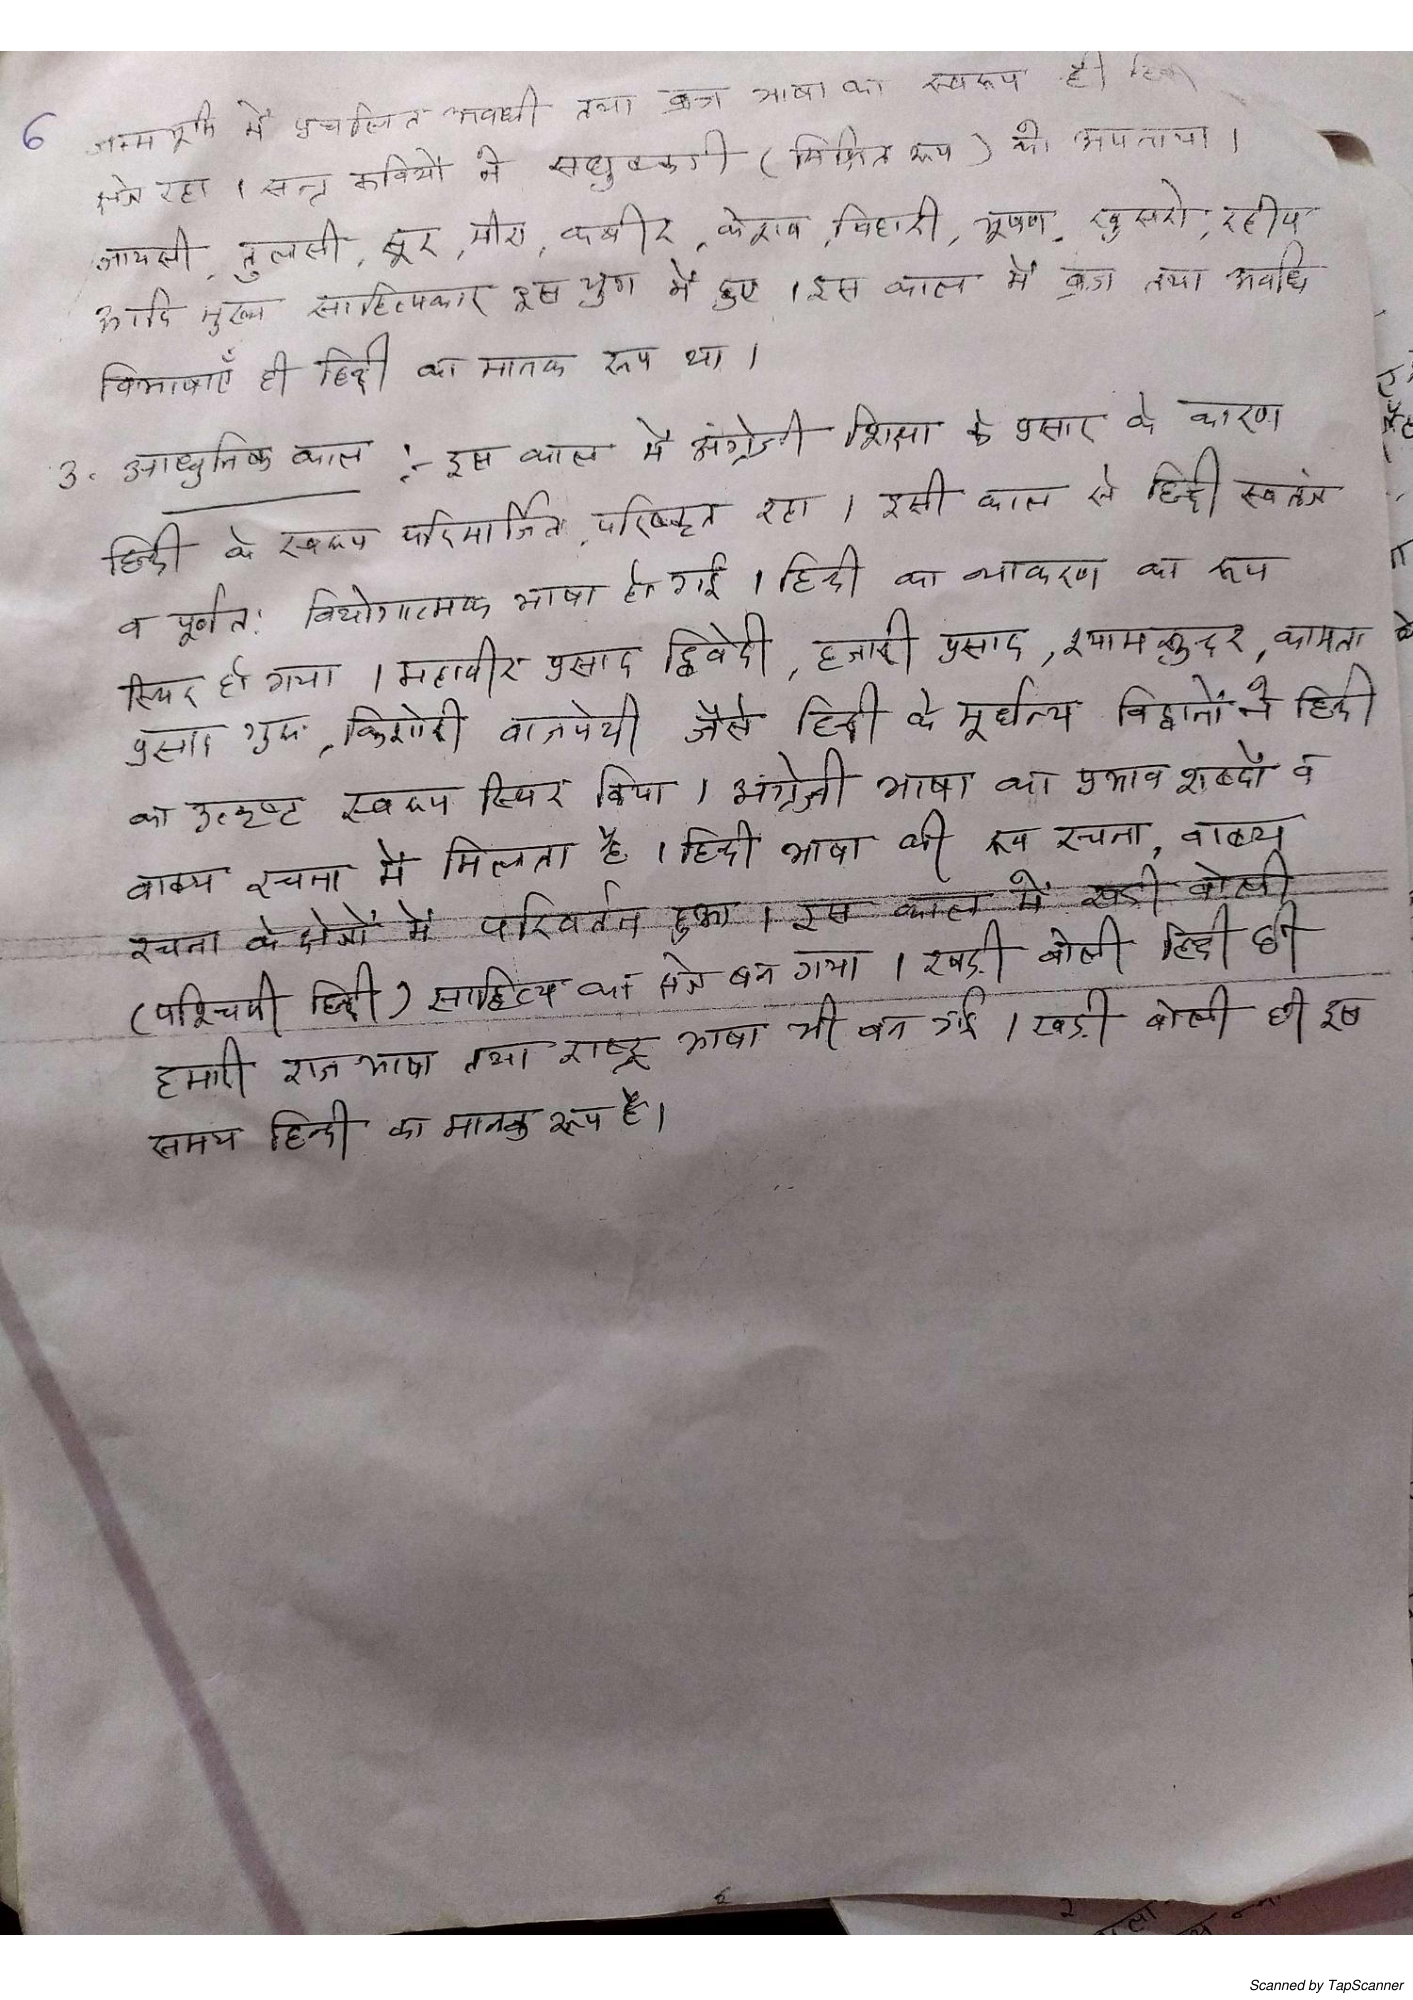 6
जन्मभूमि में प्रचलित अवधी तथा ब्रज भाषा का स्वरूप ही
क्षेत्र रहा । सन्त कवियों ने सधुक्कडी (मिश्रित रूप) को अपनाया ।
जायसी, तुलसी, सूर, मीरा, कबीर, केशव, बिहारी, भूषण, खुसरो, रहीम
आदि मुख्य साहित्यकार इस युग में हुए । इस काल में ब्रज तथा अवधि
विभाषाएँ ही हिन्दी का मानक रूप था ।
3. आधुनिक काल :- इस काल में अंग्रेजी शिक्षा के प्रसार के कारण
हिन्दी के स्वरूप परिमार्जित, परिष्कृत रहा । इसी काल से हिन्दी स्वतंत्र
व पूर्णत: वियोगात्मक भाषा हो गई । हिन्दी का व्याकरण का रूप
स्थिर हो गया । महावीर प्रसाद द्विवेदी, हजारी प्रसाद, श्यामसुन्दर, कामता
प्रसाद गुरू, किशोरी वाजपेयी जैसे हिन्दी के मूर्धन्य विद्वानों ने हिन्दी
का उत्कृष्ट स्वरूप स्थिर किया । अंग्रेजी भाषा का प्रभाव शब्दों व
वाक्य रचना में मिलता है । हिन्दी भाषा की रूप रचना, वाक्य
रचना के क्षेत्रों में परिवर्तन हुआ । इस काल में खडी बोली
(पश्चिमी हिन्दी) साहित्य का क्षेत्र बन गया । खड़ी बोली हिन्दी ही
हमारी राजभाषा तथा राष्ट्र भाषा भी बन गई । खड़ी बोली ही इस
समय हिन्दी का मानक रूप है।
Scanned by TapScanner